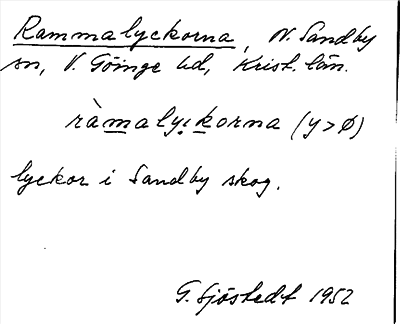 Rammalyckorna, N. Sandby
sn, V. Göinge hd, Krist. län.
ràmalyckorna (y>ø)
lyckor i Sandby skog.
G. Sjöstedt 1952